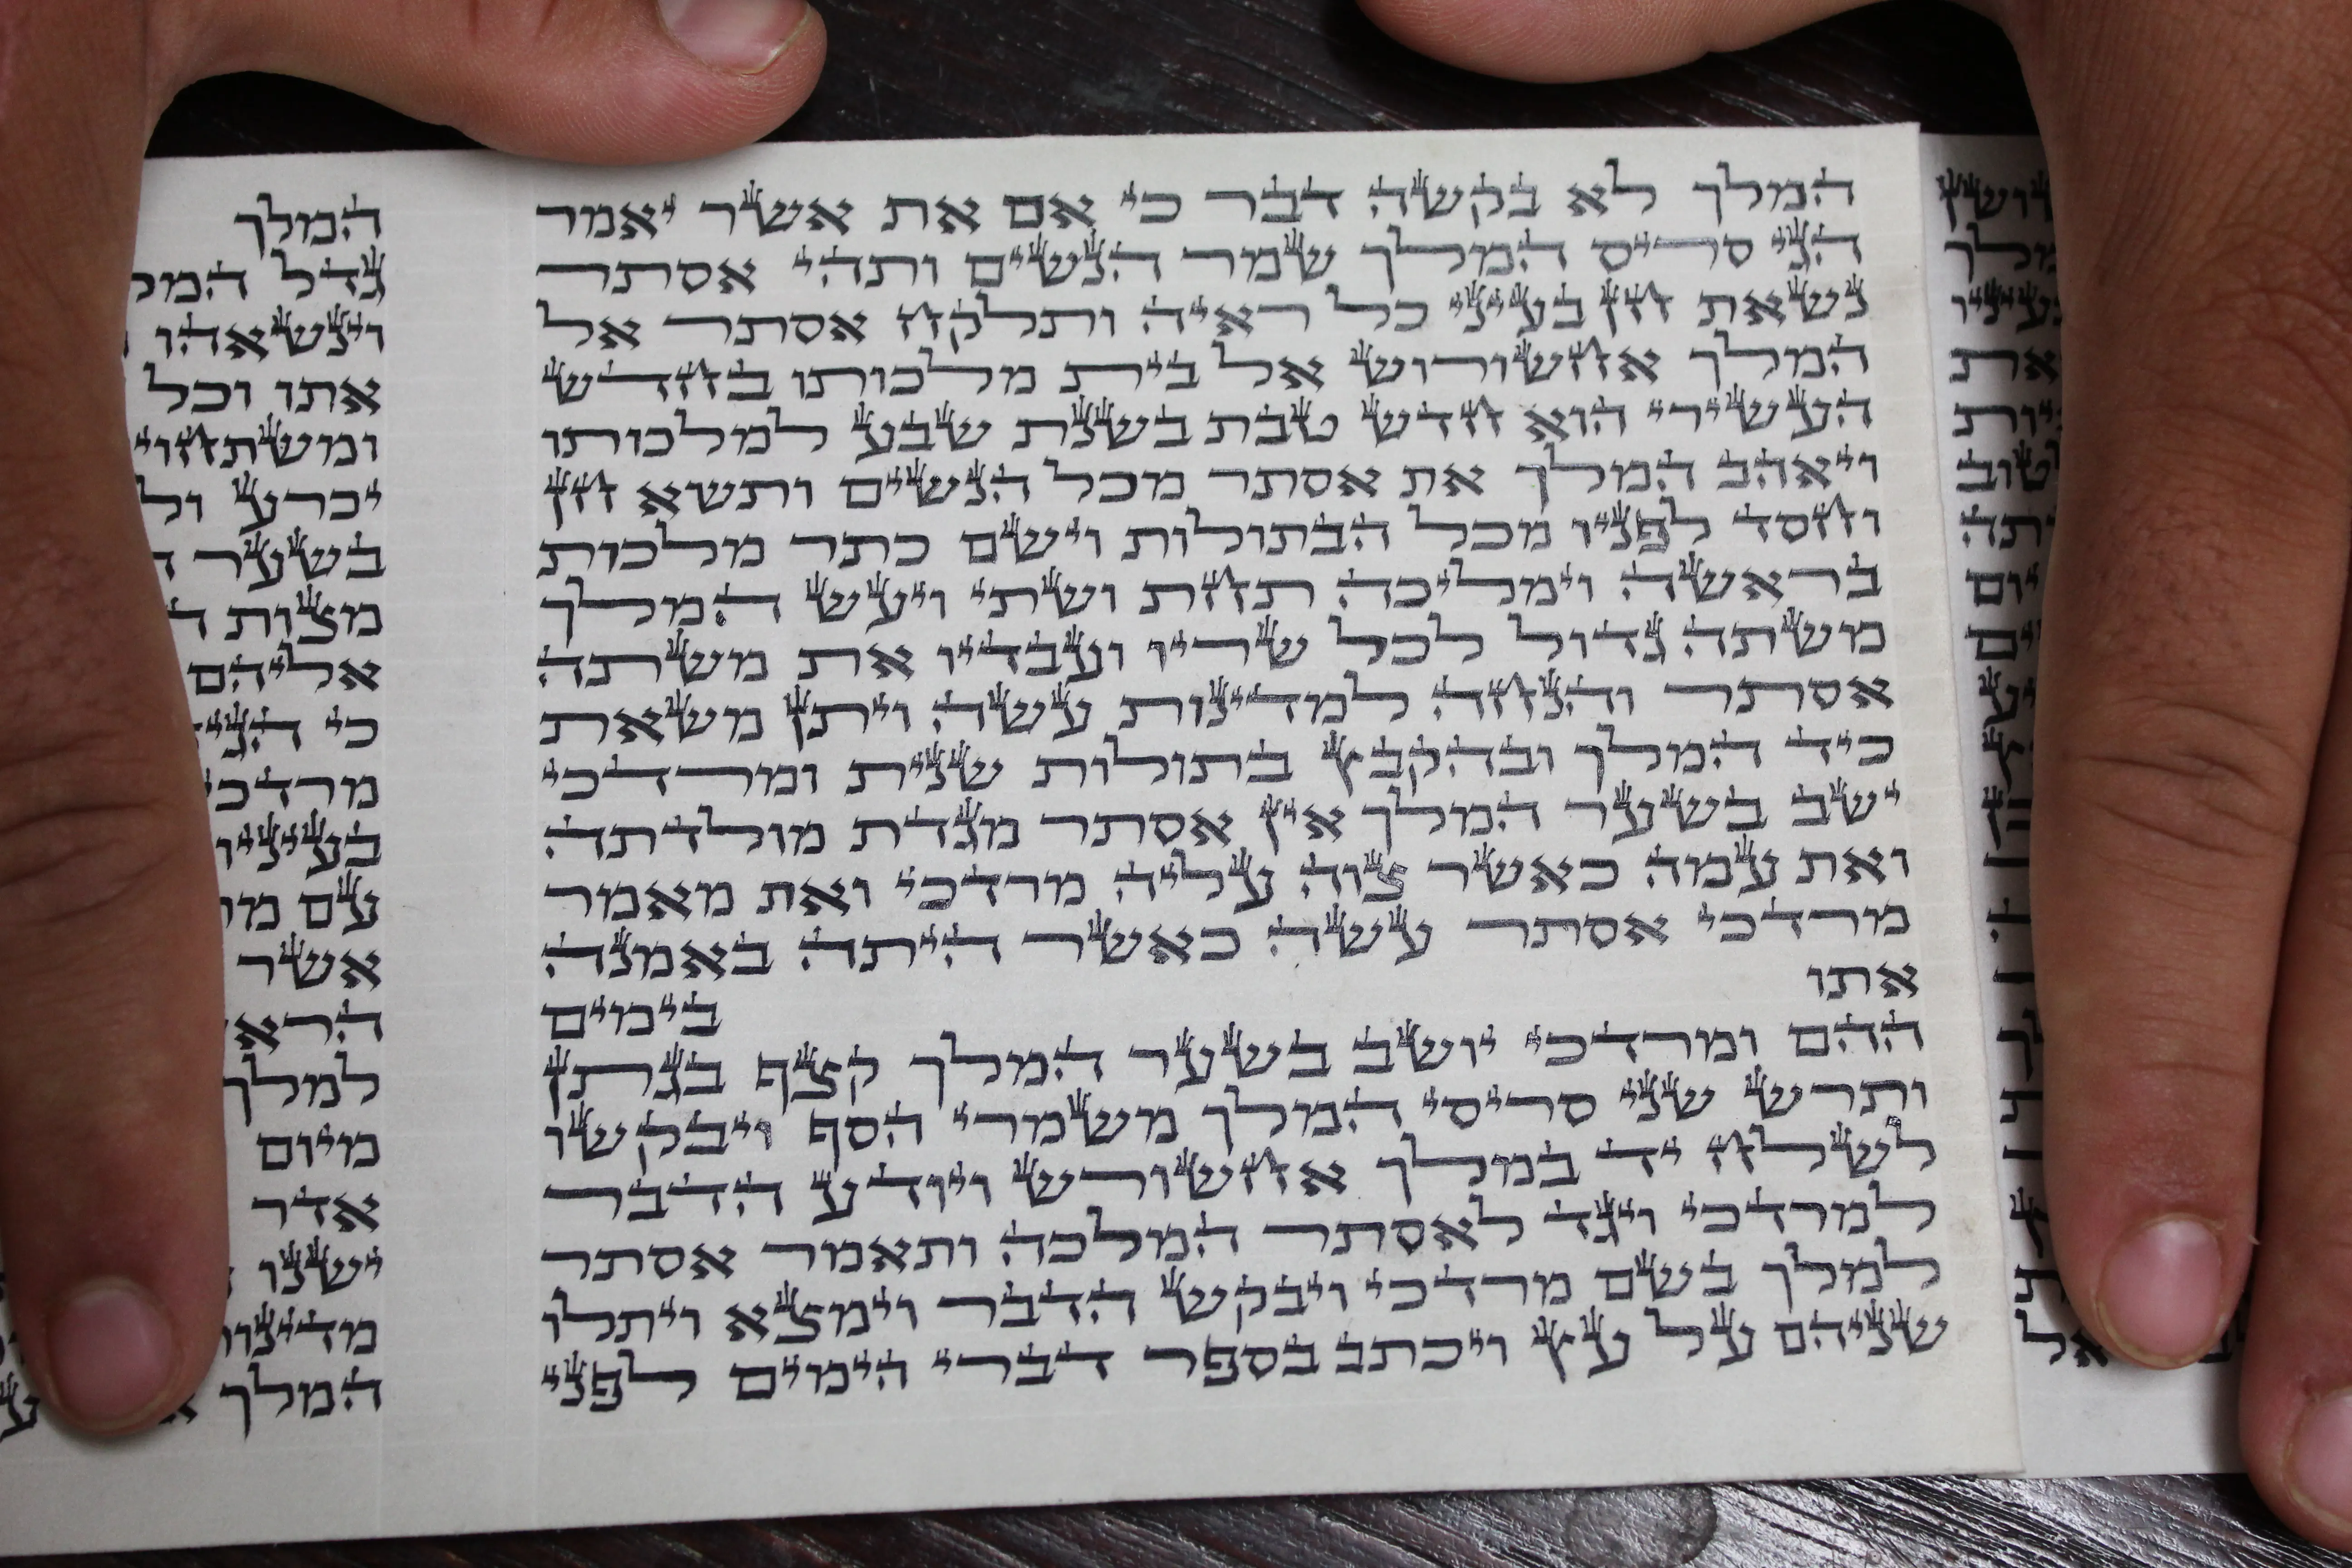 המלך לא בקשה דבר כי אם את אשר יאמר
הגי סריס המלך שמר הנשים ותהי אסתר
נשאת חן בעיני כל ראיה ותלקח אסתר אל
המלך אחשורוש אל בית מלכותו בחדש
העשירי הוא חדש טבת בשנת שבע למלכותו
ויאהב המלך את אסתר מכל הנשים ותשא חן
וחסד לפניו מכל הבתולות וישם כתר מלכות
בראשה וימליכה תחת ושתי ויעש המלך
משתה גדול לכל שריו ועבדיו את משתה
אסתר והנחה למדינות עשה ויתן משאת
כיד המלך ובהקבץ בתולות שנית ומרדכי
ישב בשער המלך אין אסתר מגדת מולדתה
ואת עמה כאשר צוה עליה מרדכי ואת מאמר
מרדכי אסתר עשה כאשר היתה באמנה
אתו בימים
ההם ומרדכי יושב בשער המלך קצף בגתן
ותרש שני סריסי המלך משמרי הסף ויבקשו
לשלח יד במלך אחשורש ויודע הדבר
למרדכי ויגד לאסתר המלכה ותאמר אסתר
למלך בשם מרדכי ויבקש הדבר וימצא ויתלו
שניהם על עץ ויכתב בספר דברי הימים לפני
המלך
גדל
וינשאהו
אתו וכל
יכרע
בשער
מצות
אליהם
כי
בעיניו
עם
אשר
למלך
מיום
אדר
ישנו
המלך